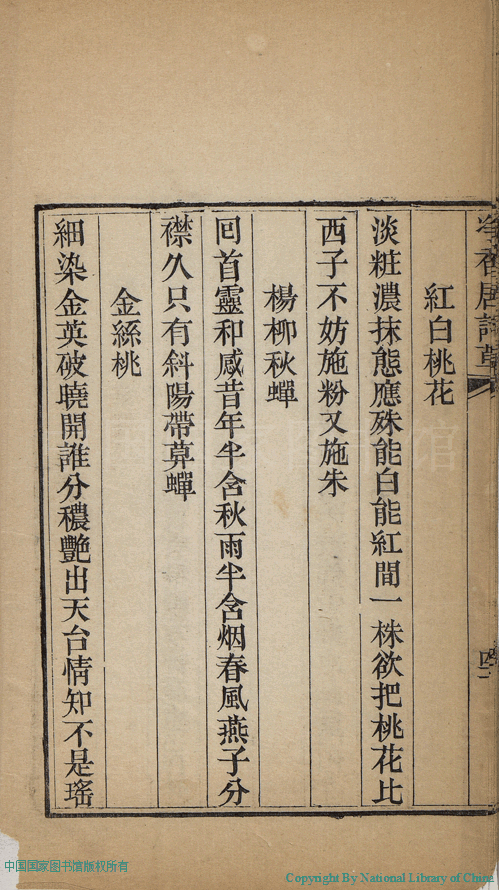 香居詩草
紅白桃花
淡粧濃抹態應殊能白能紅間一株欲把桃花比
西子不妨施粉又施朱
楊柳秋蟬
囘首靈和感昔年半含秋雨半含烟春風燕子分
襟久只有斜陽帶莫蟬
金絲桃
細染金英破曉開誰分穠艷出天台情知不是瑤
中国国家图书馆版权所有
Copyright By National Library of China